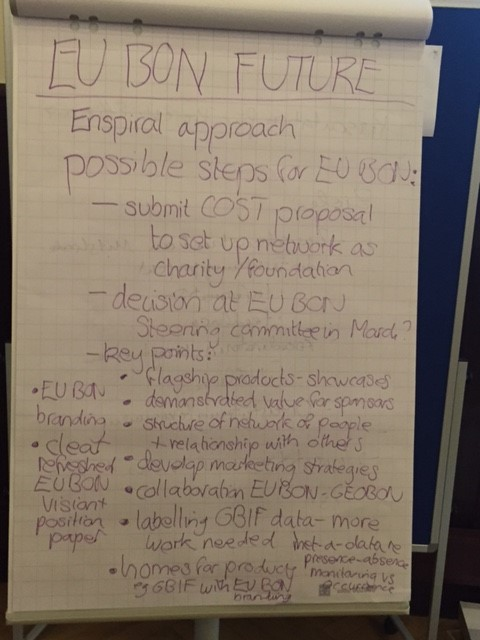 EU BON FUTURE
Enspiral approach
possible steps for EU BON:
- submit COST proposal
to set up network as
charity/foundation
- decision at EU BON
Steering committee in March?
- key points:
• flagship products - showcases
• demonstrated value for sponsors
• structure of network of people
+ relationship with others
• develop marketing strategies
• collaboration EUBON - GEOBON
• labelling GBIF data - more
work needed
met-a-data re
presence-absence
monitoring vs
occurrence
• homes for products
eg GBIF with EU BON
branding
• EU BON
branding
• clear
refreshed
EUBON
vision +
position
paper